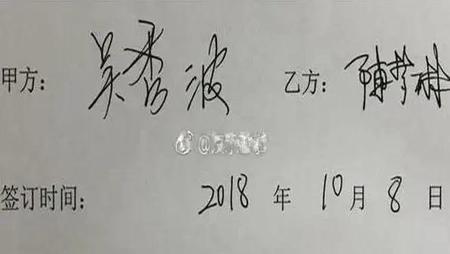 甲方: 吴秀波 乙方: 陈
签订时间: 2018 年 10 月 8 日